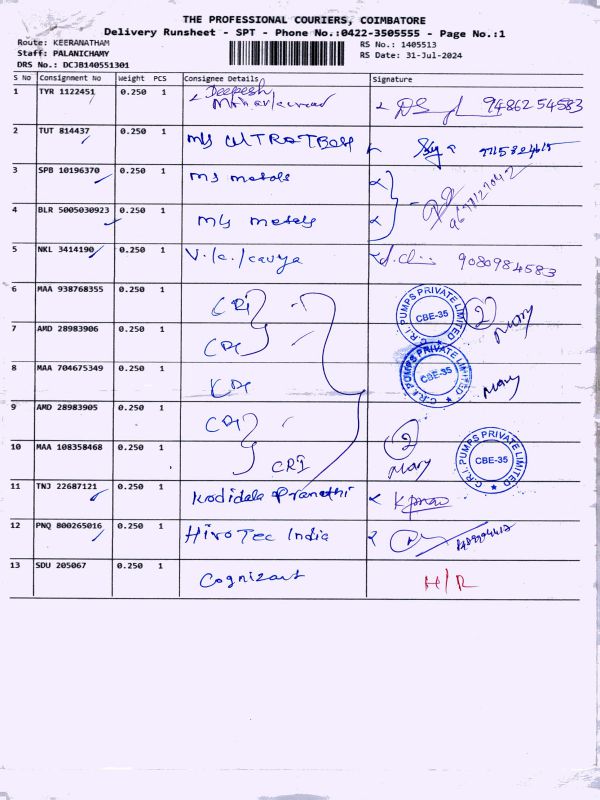 THE PROFESSIONAL COURIERS, COIMBATORE
Delivery Runsheet - SPT - Phone No.:0422-3505555 - Page No.:1
Route: KEERANATHAM RS No.: 1405513
Staff: PALANICHAMY RS Date: 31-Jul-2024
DRS No.: DCJB140551301
S No Consignment No Weight PCS Consignee Details Signature
1 TYR 1122451 0.250 1 Deepesh 9486254583
2 TUT 814437 0.250 1 M/s
3 SPB 10196370 0.250 1 MS metals
4 BLR 5005030923 0.250 1 M/s metals
5 NKL 3414190 0.250 1 V.k. kavya 9080984583
6 MAA 938768355 0.250 1 CRI C.R.I. PUMPS PRIVATE LIMITED CBE-35 2 Mary
7 AMD 28983906 0.250 1 CRI
8 MAA 704675349 0.250 1 CRI C.R.I. PUMPS PRIVATE LIMITED CBE-35 Mary
9 AMD 28983905 0.250 1 CRI 2
10 MAA 108358468 0.250 1 CRI Mary C.R.I. PUMPS PRIVATE LIMITED CBE-35
11 TNJ 22687121 0.250 1 Kodidala Pranathi
12 PNQ 800265016 0.250 1 HiroTec India
13 SDU 205067 0.250 1 Cognizant H/R